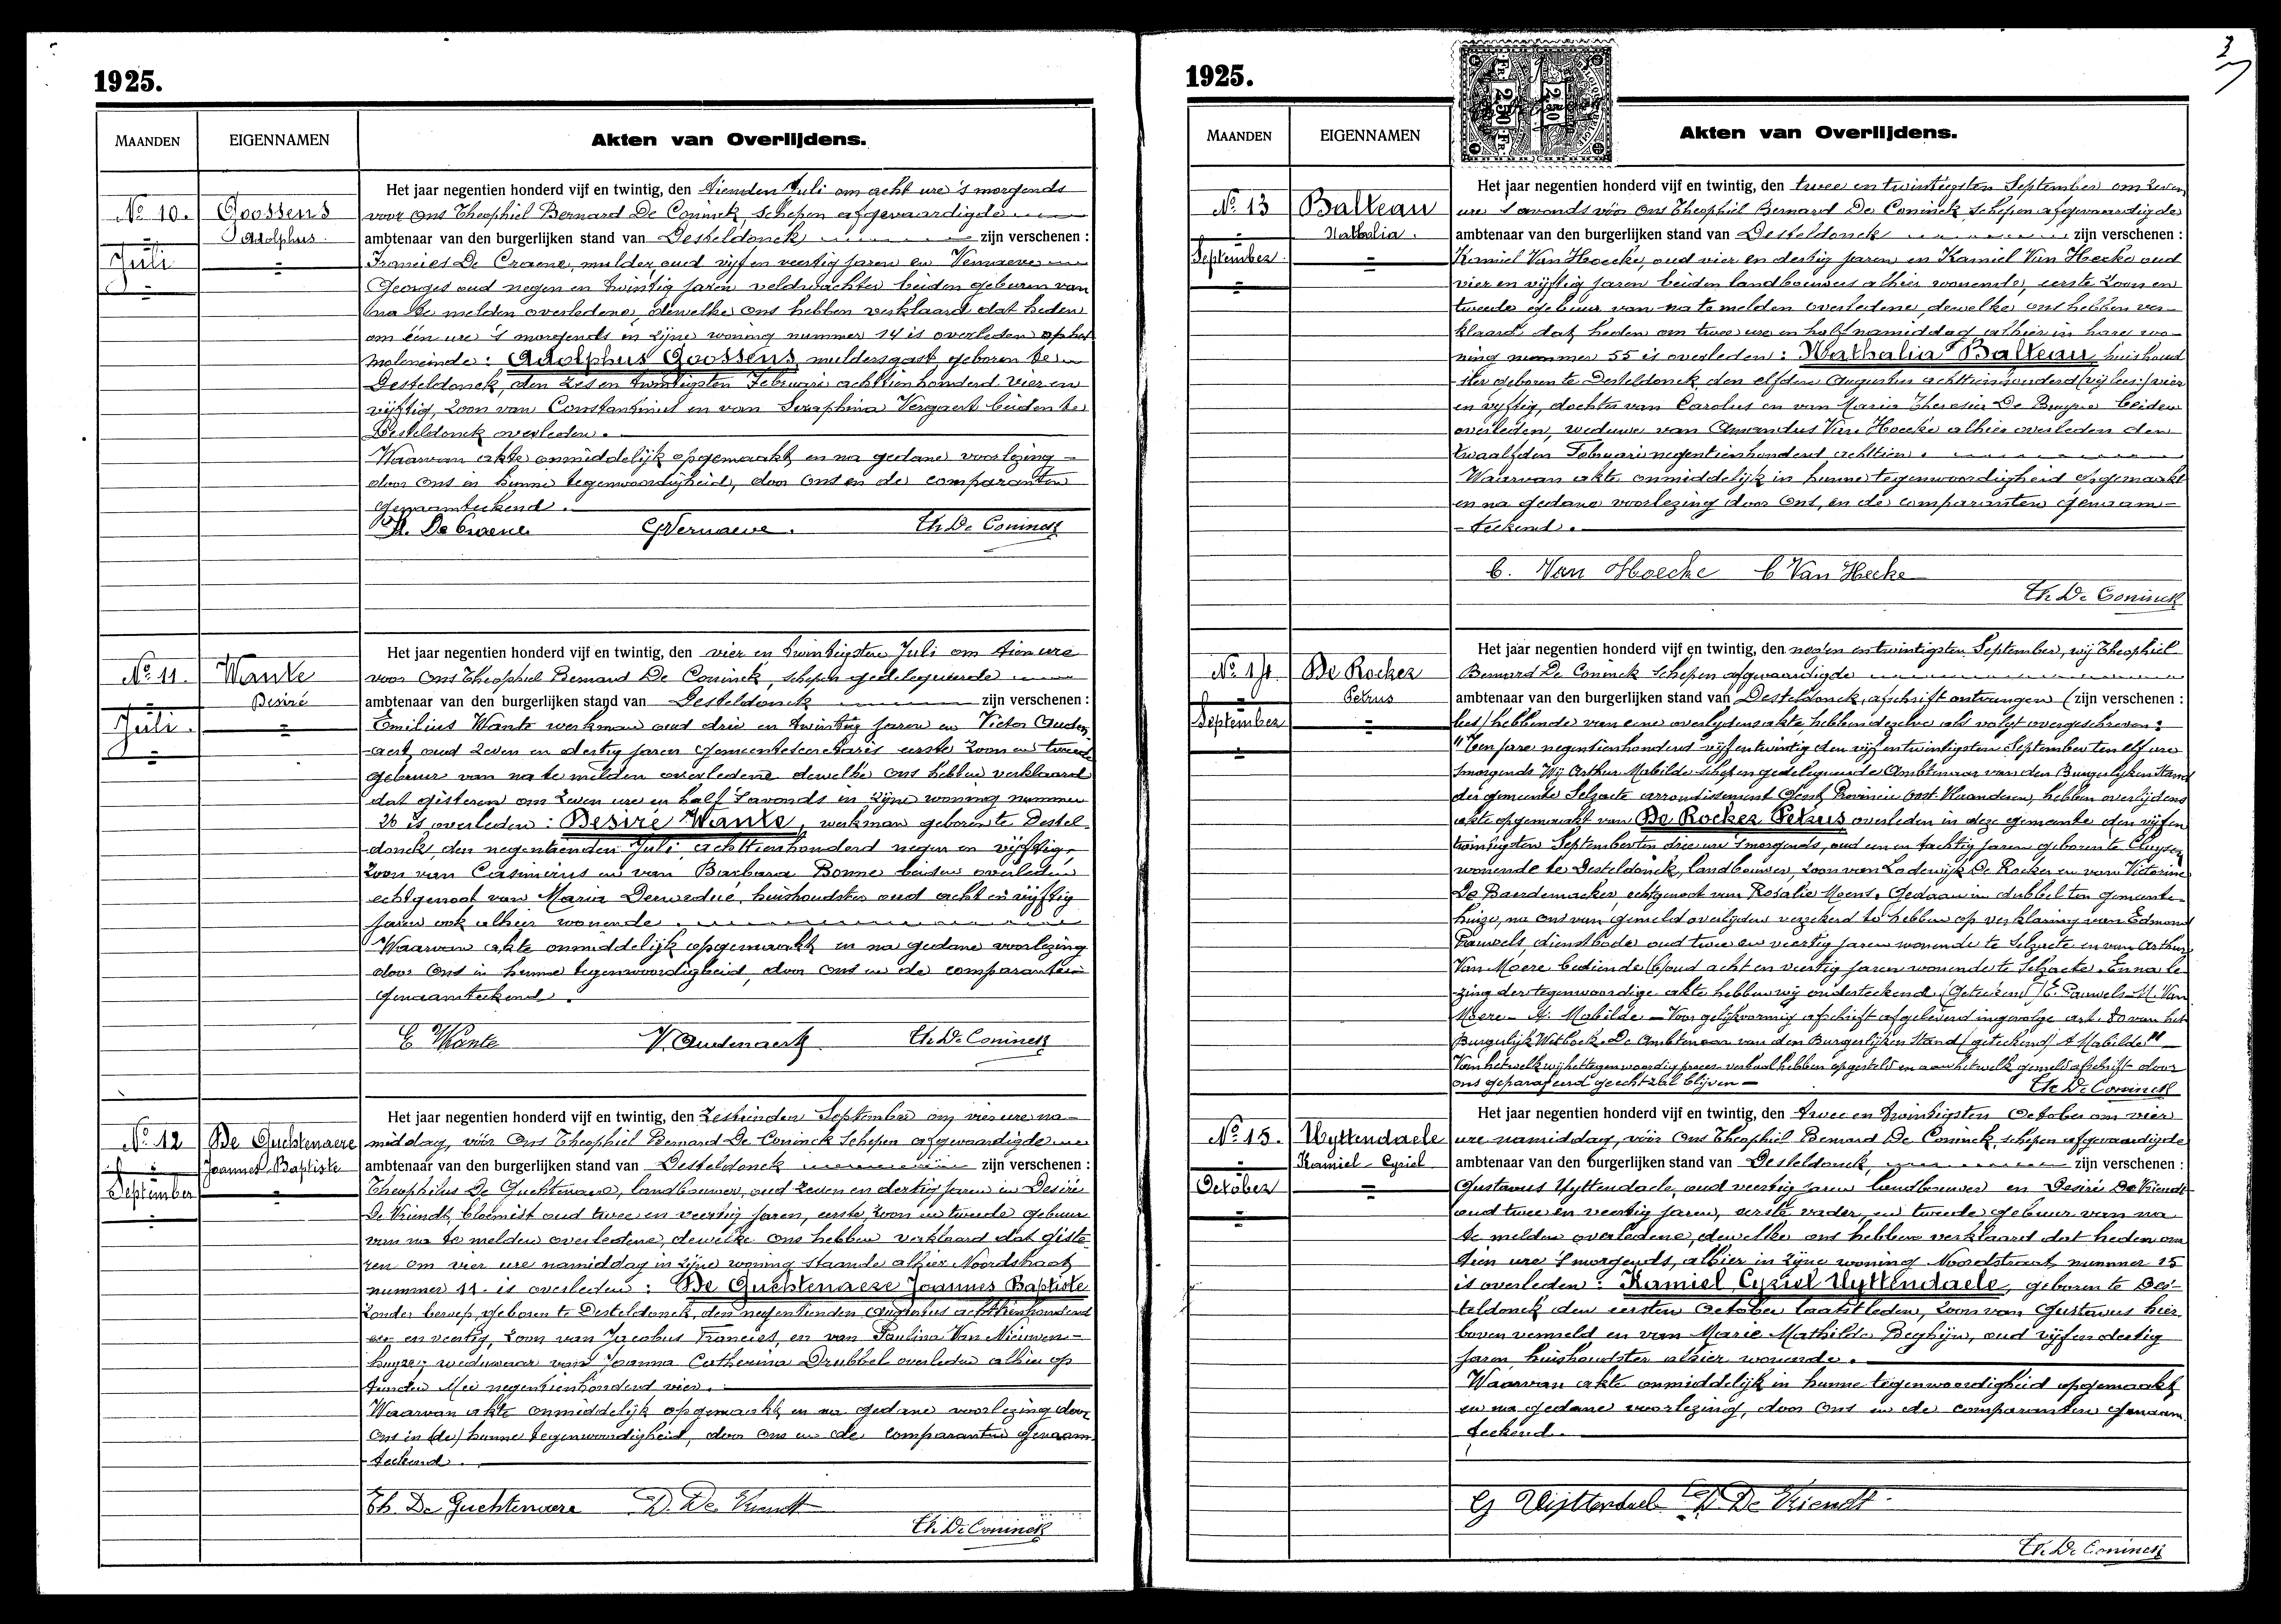 1925.
MAANDEN
EIGENNAMEN
Akten van Overlijdens.
No 10.
Goossens
Adolphus.
Juli
Het jaar negentien honderd vijf en twintig, den tienden Juli om acht ure 's morgends
voor ons Theophiel Bernard De Coninck, schepen afgevaardigde
ambtenaar van den burgerlijken stand van Desteldonck zijn verschenen :
Francies De Craene, mulder, oud vijf en veertig jaren en Vernaeve
Georges oud negen en twintig jaren veldwachter beiden geburen van
na te melden overledene, dewelke ons hebben verklaard dat heden
om één ure 's morgends in zijne woning nummer 14 is overleden op het
Moleneinde : Adolphus Goossens, muldersgast geboren te
Desteldonck, den zes en twintigsten Februari achttien honderd vier en
vijftig, zoon van Constantinus en van Seraphina Vergaert beiden te
Desteldonck overleden.
Waarvan akte onmiddelijk opgemaakt en na gedane voorlezing
door ons in hunne tegenwoordigheid, door ons en de comparanten
genaamteekend.
De Craene GVernaeve. Th. De Coninck
No 11.
Wante
Desiré
Juli.
Het jaar negentien honderd vijf en twintig, den vier en twintigsten Juli om tien ure
voor ons Theophiel Bernard De Coninck, schepen gedelegueerde
ambtenaar van den burgerlijken stand van Desteldonck zijn verschenen :
Emilius Wante werkman oud drie en twintig jaren en Victor Auden-
aert, oud zeven en dertig jaren gemeentesecretaris eerste zoon en tweede
gebuur van na te melden overledene dewelke ons hebben verklaard
dat gisteren om zeven ure en half 's avonds in zijne woning nummer
26 is overleden : Desiré Wante, werkman geboren te Destel-
donck, den negentienden Juli achttienhonderd negen en vijftig,
zoon van Casimirus en van Barbara Bonne beiden overleden
echtgenoot van Maria Derwedué, huishoudster oud acht en vijftig
jaren ook alhier wonende.
Waarvan akte onmiddelijk opgemaakt en na gedane voorlezing
door ons in hunne tegenwoordigheid, door ons en de comparanten
genaamteekend.
E Wante V. Audenaert Th. De Coninck
No 12
De Guchtenaere
Joannes Baptiste
September
Het jaar negentien honderd vijf en twintig, den zestienden September om vier ure na-
middag, vóór ons Theophiel Bernard De Coninck schepen afgevaardigde
ambtenaar van den burgerlijken stand van Desteldonck zijn verschenen :
Theophilus De Guchtenaere, landbouwer, oud zeven en dertig jaren en Desiré
De Vriendt, bloemist oud twee en veertig jaren, eerste zoon en tweede gebuur
van na te melden overledene, dewelke ons hebben verklaard dat giste-
ren om vier ure namiddag in zijne woning staande alhier Noordstraat
nummer 11. is overleden : De Guchtenaere Joannes Baptiste
zonder beroep, geboren te Desteldonck, den negentienden Augustus achttienhonderd
en veertig, zoon van Jacobus Francies, en van Paulina Van Nieuwen-
huyze; weduwaar van Joanna Catherina Drubbel overleden alhier op
tienden Mei negentienhonderd vier.
Waarvan akte onmiddelijk opgemaakt en na gedane voorlezing door
ons in (de) hunne tegenwoordigheid, door ons en de comparanten genaam-
teekend.
Th. De Guchtenaere D. De Vriendt
Th. De Coninck
3
1925.
MAANDEN
EIGENNAMEN
Akten van Overlijdens.
No 13
Balteau
Nathalia.
September.
Het jaar negentien honderd vijf en twintig, den twee en twintigsten September om zeven
ure 's avonds vóór ons Theophiel Bernard De Coninck schepen afgevaardigde
ambtenaar van den burgerlijken stand van Desteldonck zijn verschenen :
Kamiel Van Hoecke, oud vier en dertig jaren en Kamiel Van Hecke oud
vier en vijftig jaren beiden landbouwers alhier wonende, eerste zoon en
tweede gebuur van na te melden overledene, dewelke ons hebben ver-
klaard dat heden om twee ure en half namiddag alhier in hare wo-
ning nummer 55 is overleden : Nathalia Balteau, huishoud-
ster geboren te Desteldonck den elfden Augustus achttienhonderd vier
en vijftig, dochter van Carolus en van Maria Theresia De Bruyne beiden
overleden, weduwe van Amandus Van Hoecke alhier overleden den
twaalfden Februari negentienhonderd achttien.
Waarvan akte onmiddelijk in hunne tegenwoordigheid opgemaakt
en na gedane voorlezing door ons, en de comparanten genaam-
teekend.
C. Van Hoecke C Van Hecke
Th. De Coninck
No 14
De Rocker
Petrus
September
Het jaar negentien honderd vijf en twintig, den negen en twintigsten September, wij Theophiel
Bernard De Coninck schepen afgevaardigde
ambtenaar van den burgerlijken stand van Desteldonck, afschrift ontvangen (zijn verschenen :
hebbende van eene overlijdensakte, hebben dezelve als volgt overgeschreven :
"Ten jare negentienhonderd vijf en twintig den vijf en twintigsten September ten elf ure
's morgends Wij Arthur Mabilde schepen gedelegueerde Ambtenaar van den Burgerlijken Stand
der gemeente Selzaete arrondissement Gent Provincie Oost-Vlaanderen, hebben overlijdens
akte opgemaakt van De Rocker Petrus overleden in deze gemeente den vijf en
twintigsten September ten drie ure 's morgends, oud een en tachtig jaren geboren te Cluysen
wonende te Desteldonck, landbouwer, zoon van Lodewijk De Rocker en van Victorine
De Baerdemacker, echtgenoot van Rosalie Moens. Gedaan in dubbel ten gemeente-
huize, na ons van gemeld overlijden verzekerd te hebben op verklaring van Edmond
Pauwels, dienstbode oud twee en veertig jaren wonende te Selzaete en van Arthur
Van Moere bediende oud acht en veertig jaren wonende te Selzaete. En na le-
zing der tegenwoordige akte hebben wij onderteekend (Geteekend) E. Pauwels - Van
Moere - A. Mabilde - Voor gelijkvormig afschrift afgeleverd ingevolge art. 80 van het
Burgerlijk Wetboek. De Ambtenaar van den Burgerlijken Stand (geteekend) A Mabilde"
Van hetwelk wij het tegenwoordig proces-verbaal hebben opgesteld en aan hetwelk gemeld afschrift door
ons geparafeerd gehecht zal blijven - Th. De Coninck
No 15.
Uyttendaele
Kamiel-Cyriel
October
Het jaar negentien honderd vijf en twintig, den twee en twintigsten October om vier
ure namiddag, vóór ons Theophiel Bernard De Coninck, schepen afgevaardigde
ambtenaar van den burgerlijken stand van Desteldonck, zijn verschenen :
Gustavus Uyttendaele, oud veertig jaren landbouwer en Desiré De Vriendt
oud twee en veertig jaren, eerste vader, en tweede gebuur van na
te melden overledene, dewelke ons hebben verklaard dat heden om
tien ure 's morgends, alhier in zijne woning Noordstraat, nummer 15
is overleden : Kamiel Cyriel Uyttendaele, geboren te Des-
teldonck den eersten October laatstleden, zoon van Gustavus hier-
boven vermeld en van Marie Mathilde Beghijn, oud vijf en dertig
jaren, huishoudster alhier wonende.
Waarvan akte onmiddelijk in hunne tegenwoordigheid opgemaakt
en na gedane voorlezing, door ons en de comparanten genaam-
teekend.
G Uyttendaele D. De Vriendt
Th. De Coninck